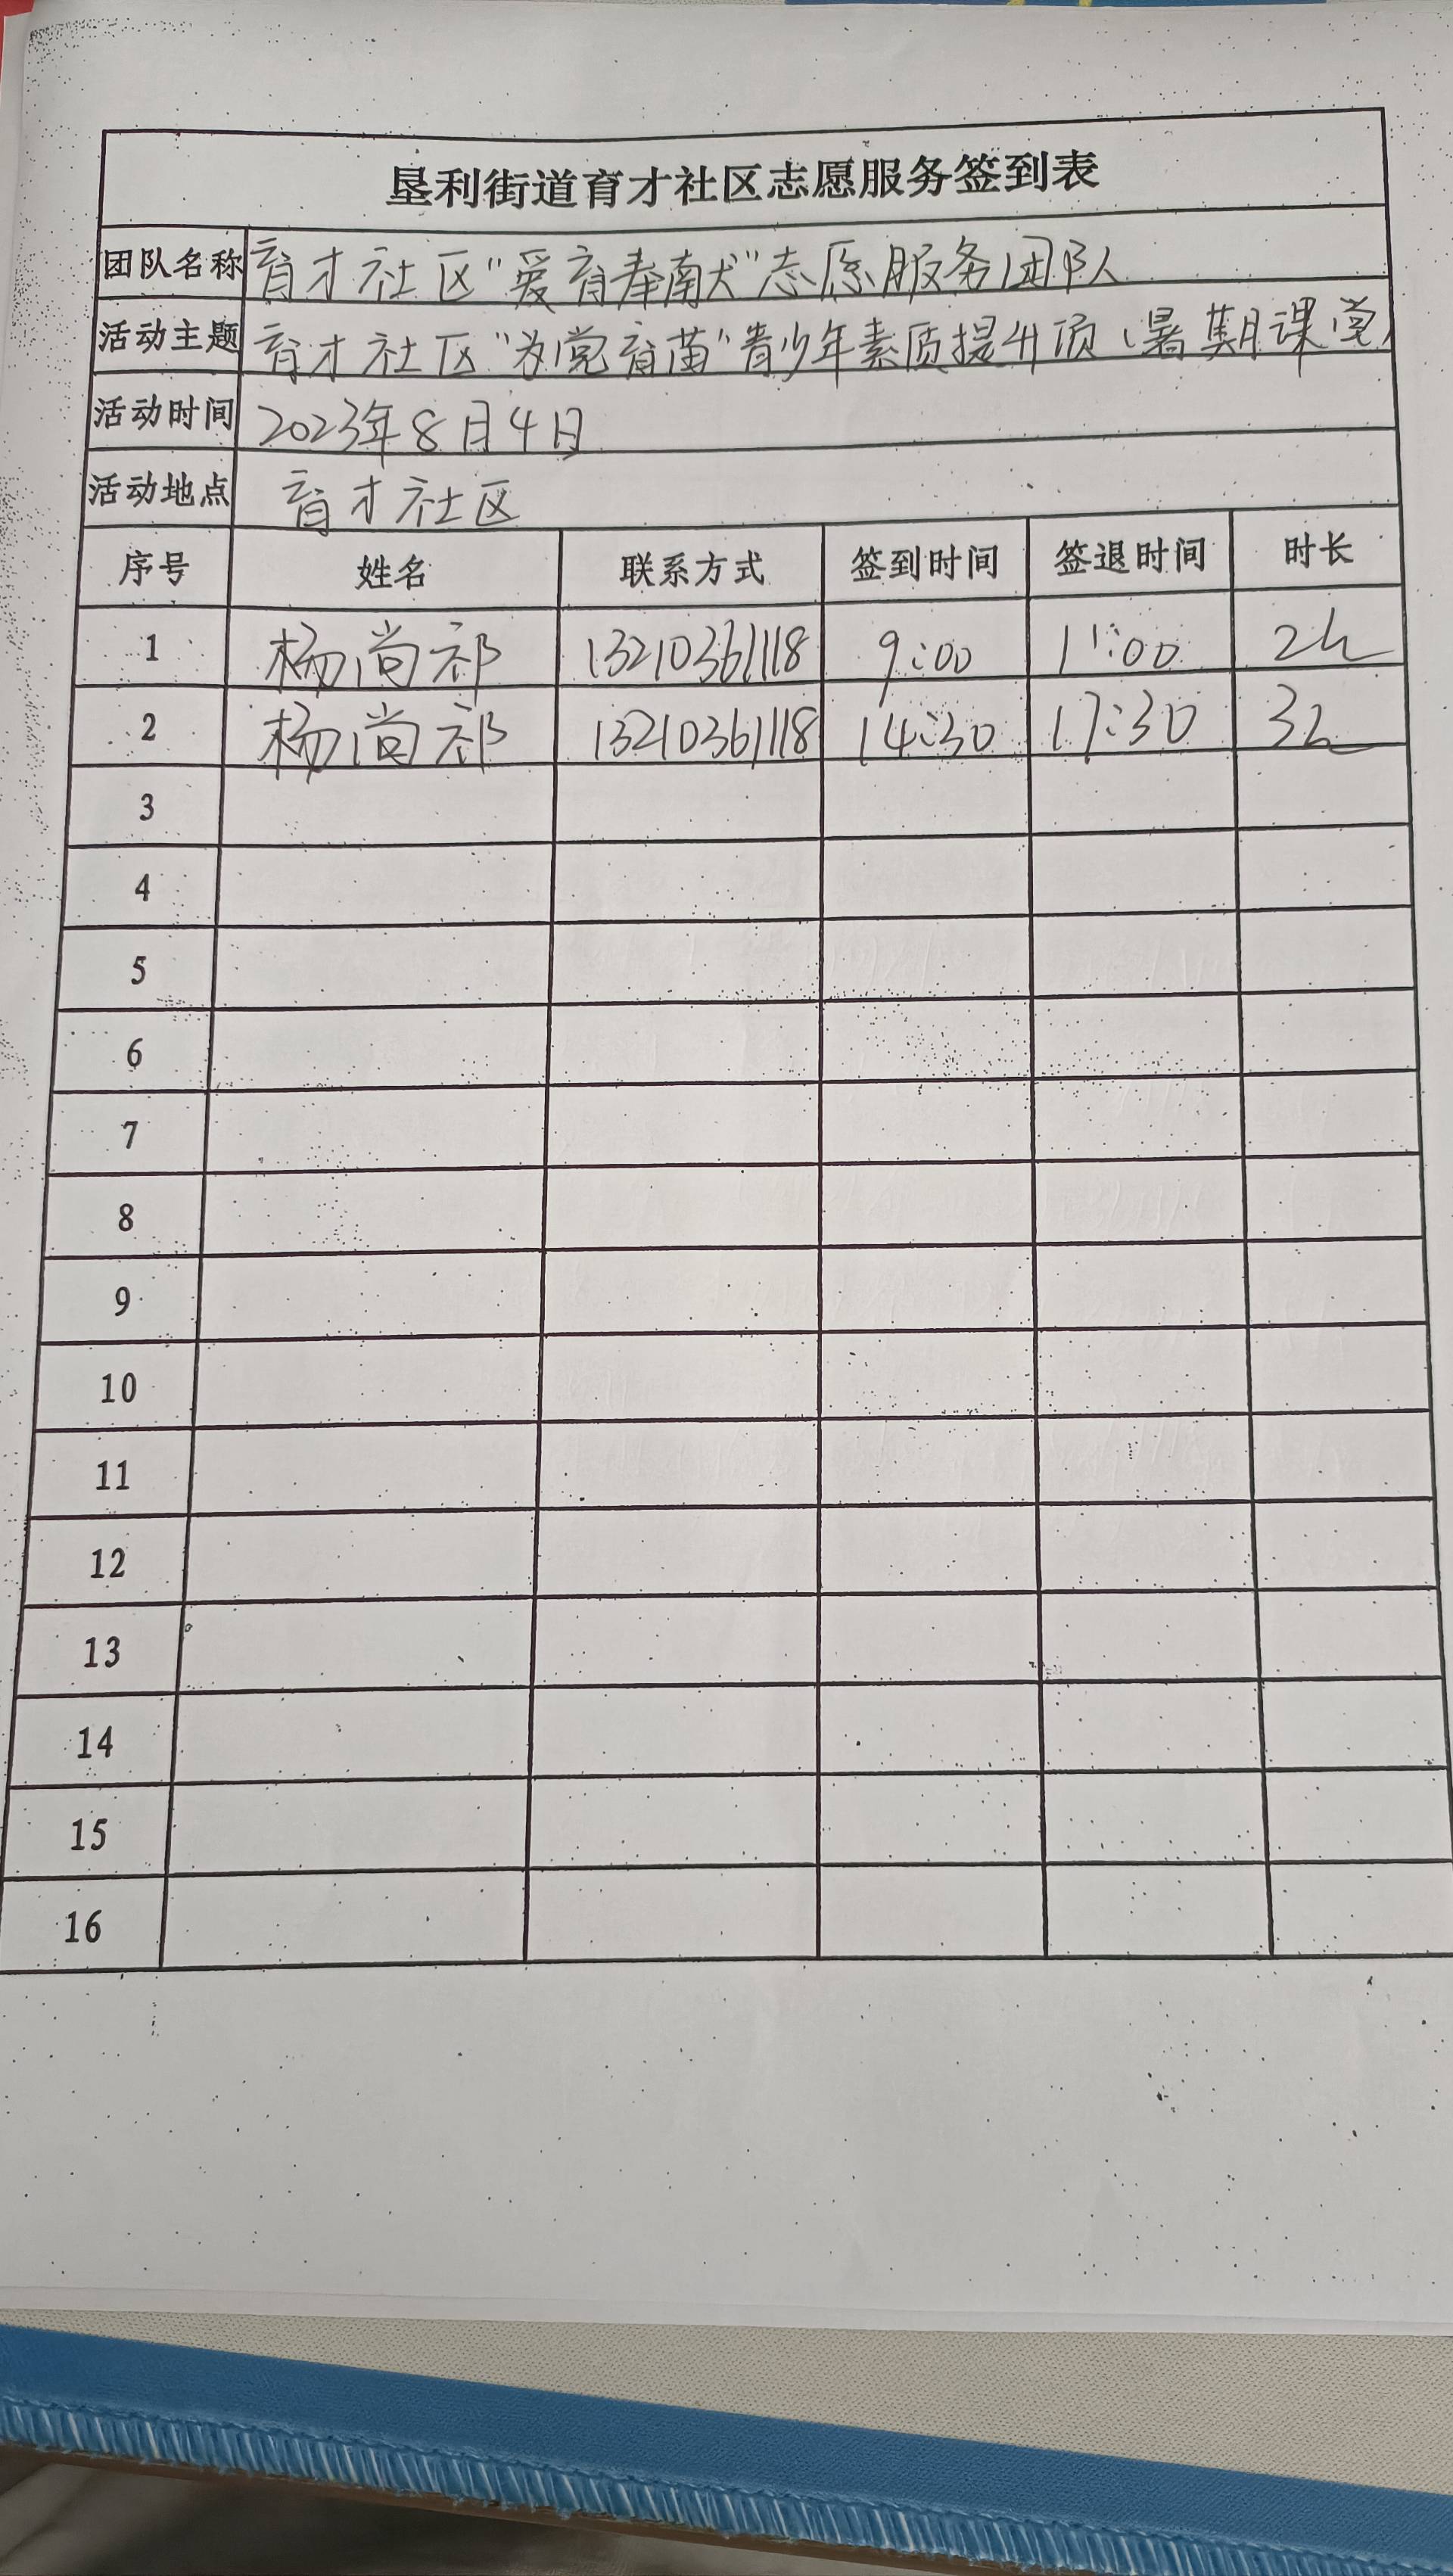 垦利街道育才社区志愿服务签到表
团队名称 育才社区“爱育奉献”志愿服务团队
活动主题 育才社区“为党育苗”青少年素质提升项（暑期课堂）
活动时间 2023年8月4日
活动地点 育才社区
序号 姓名 联系方式 签到时间 签退时间 时长
1 杨尚祁 13210361118 9:00 11:00 2h
2 杨尚祁 13210361118 14:30 17:30 3h
3
4
5
6
7
8
9
10
11
12
13
14
15
16